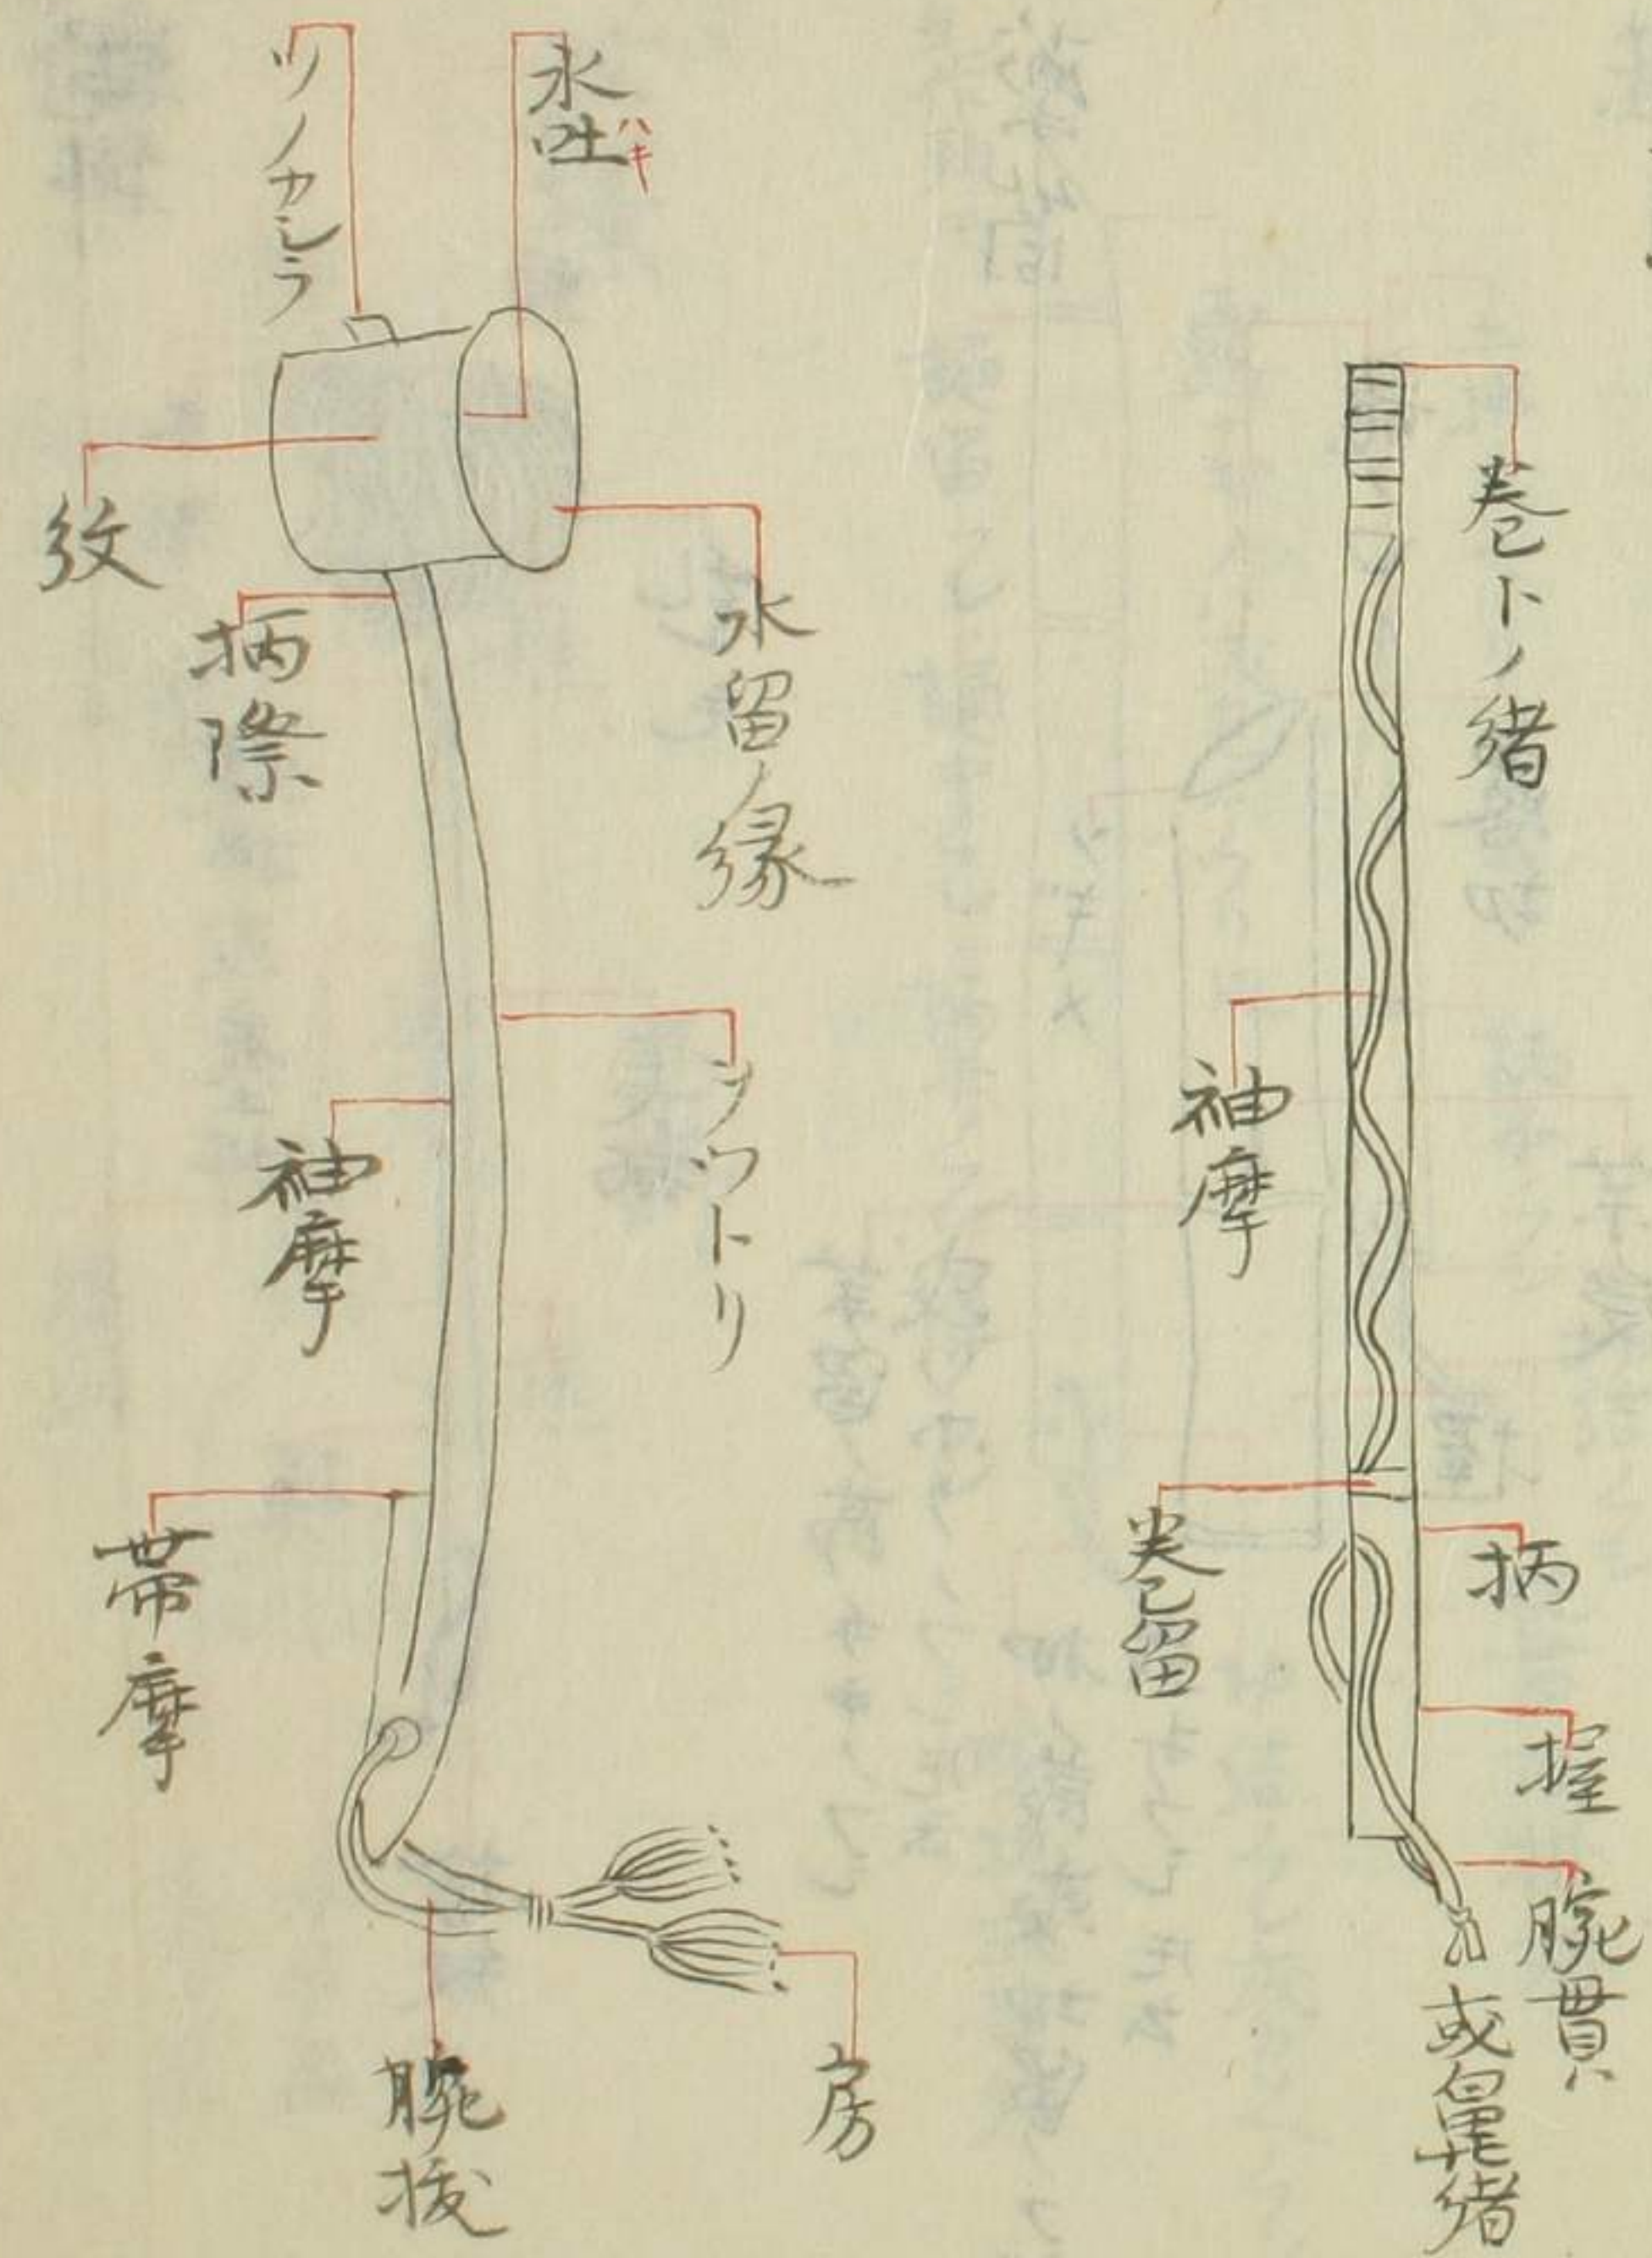 巻トノ緒
袖摩
巻留
柄
握
腕貫
或亀緒
水吐
ハキ
ツノカシラ
紋
柄際
水留ノ縁
ヲツトリ
袖摩
帯摩
腕抜
房